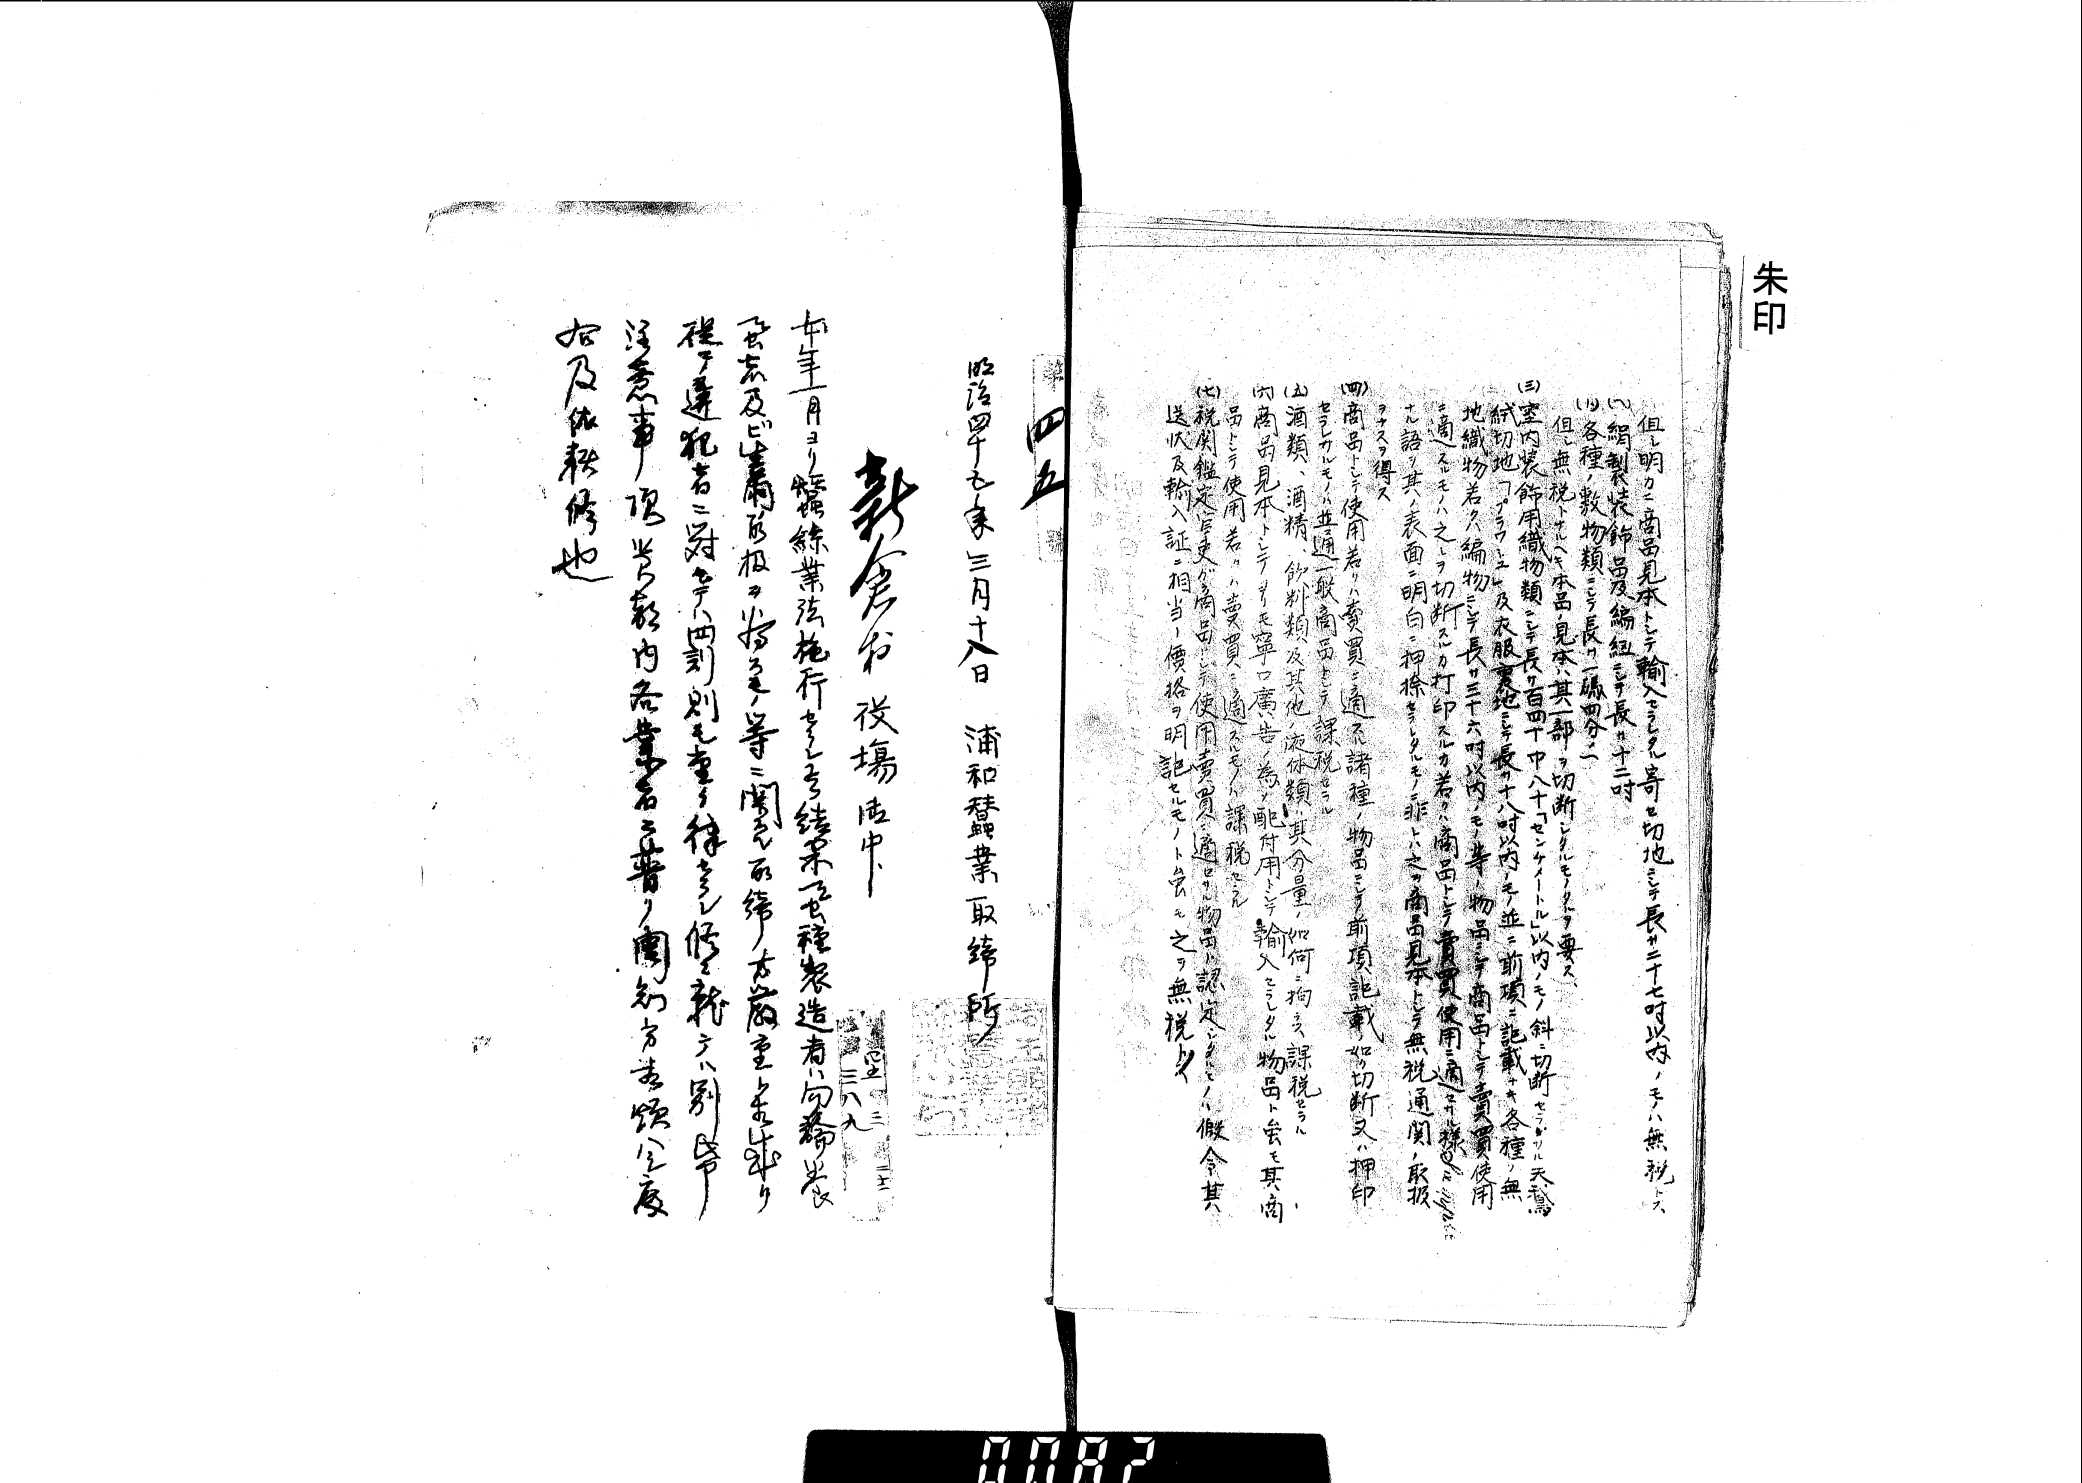 朱印
但シ明カニ商品見本トシテ輸入セラレタル寄セ切地ニシテ長サ二十七吋以内ノモノハ無税トス
絹製装飾品及編紐ニシテ長サ十二吋
各種ノ敷物類ニシテ長サ一碼四分ノ一
但シ無税トナルヘキ本品ノ見本ハ其一部ヲ切断シタルモノタルヲ要ス
(三)室内装飾用織物類ニシテ長サ百四十巾八十「センチメートル」以内ノモノ斜ニ切断セラレタル天鵞
絨切地「プラウシユ」及衣服裏地ニシテ長サ十八吋以内ノモノ並ニ前項ニ記載ナキ各種ノ無
地織物若クハ編物ニシテ長サ三十六吋以内ノモノ等ノ物品ニシテ商品トシテ売買使用
ニ適スルモノハ之レヲ切断スルカ打印スルカ若クハ商品トシテ賣買使用ニ適セサル様
ナル語ヲ其ノ表面ニ明白ニ押捺セラレタルモノニ非レハ之ヲ商品見本トシテ無税通関ノ取扱
ヲナスヲ得ス
(四)商品トシテ使用若クハ賣買ニ適スル諸種ノ物品ニシテ前項記載ノ如ク切断又ハ押印
セラレサルモノハ普通一般商品トシテ課税セラル
(五)酒類、酒精、飲料類及其他ノ液体類ハ其分量ノ如何ニ拘ラス課税セラル
(六)商品見本トシテヨリモ寧ロ廣告ノ為メ配付用トシテ輸入セラレタル物品ト雖モ其商
品トシテ使用若クハ賣買ニ適スルモノハ課税セラル
(七)税関鑑定官吏ガ商品トシテ使用賣買ニ適セサル物品ト認定シタルモノハ假令其
送状及輸入証ニ相当ノ價格ヲ明記セルモノト雖モ之ヲ無税トス
四五
明治四十五年三月十八日 浦和蚕業取締所
新倉村役場御中
本年一月ヨリ蠶絲業法施行セラレ其結果蚕種製造者ハ勿論養
蚕者及ビ生繭取扱ヲ為スモノ等ニ関スル取締ノ方厳重ト相成リ
従テ違犯者ニ対シテハ罰則モ重ク律セラレ候ニ就テハ別紙
注意事項貴部内各業者ニ普ク周知方
右及依頼候也